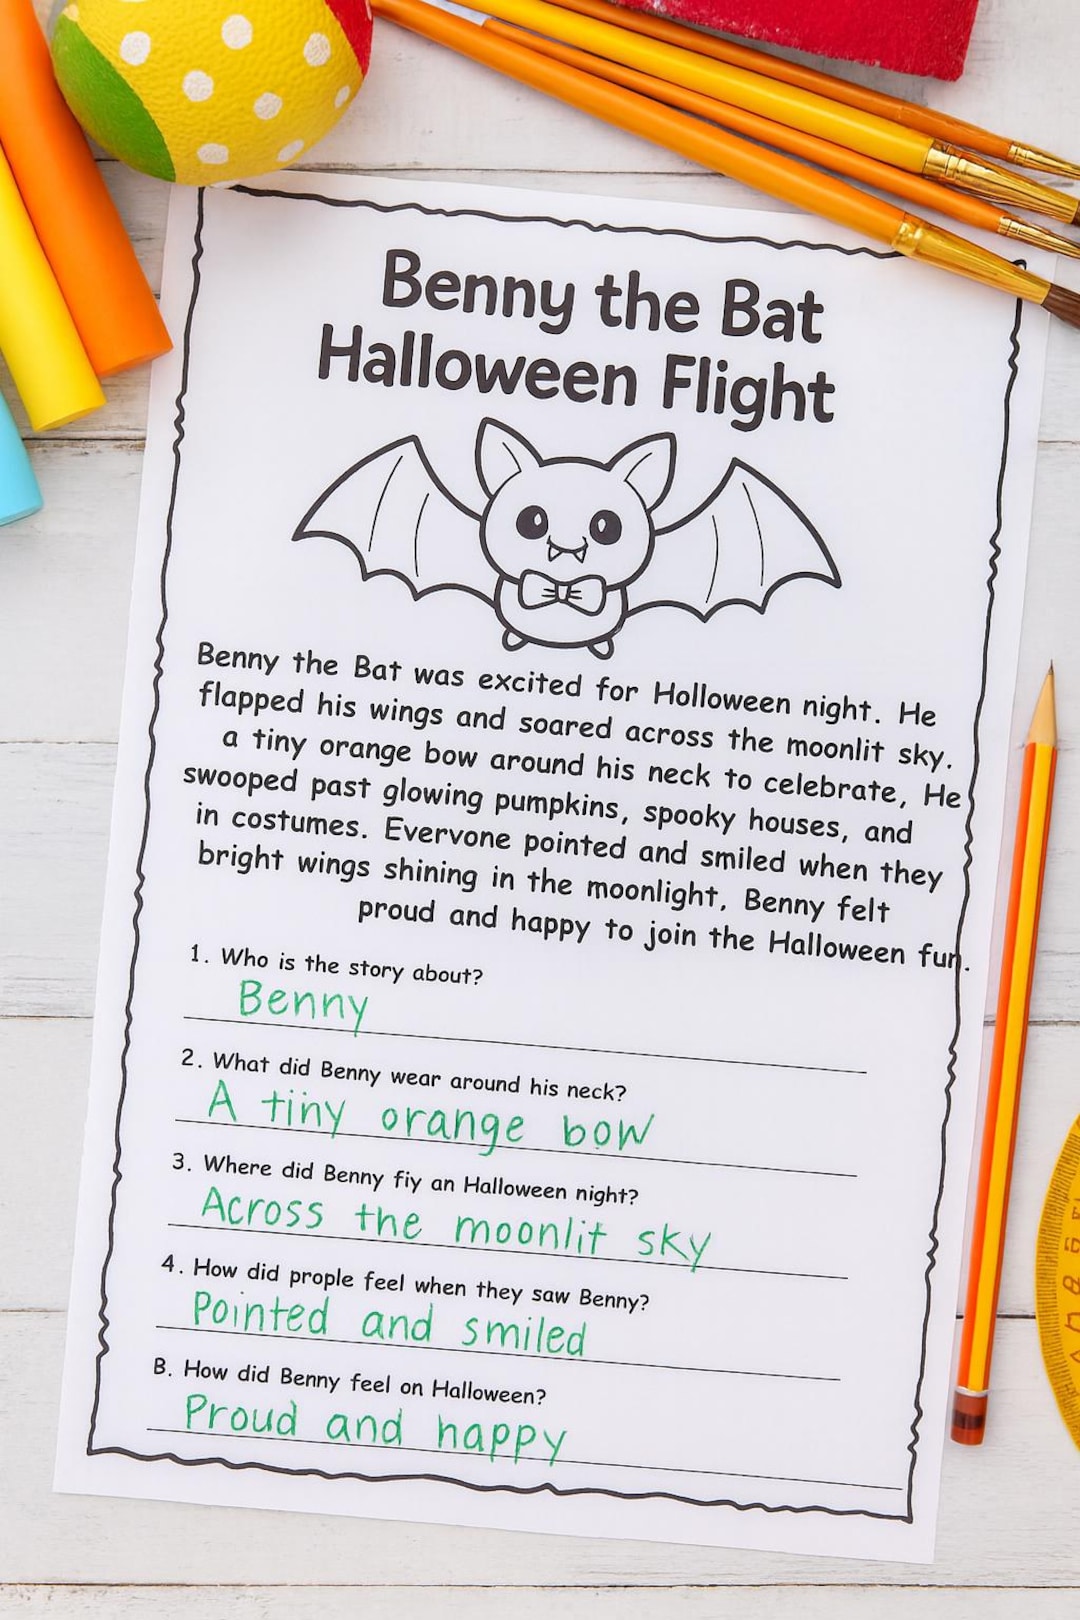 Benny the Bat
Halloween Flight
Benny the Bat was excited for Holloween night. He
flapped his wings and soared across the moonlit sky.
a tiny orange bow around his neck to celebrate, He
swooped past glowing pumpkins, spooky houses, and
in costumes. Everyone pointed and smiled when they
bright wings shining in the moonlight, Benny felt
proud and happy to join the Halloween fun.
1. Who is the story about?
Benny
2. What did Benny wear around his neck?
A tiny orange bow
3. Where did Benny fiy an Halloween night?
Across the moonlit sky
4. How did prople feel when they saw Benny?
Pointed and smiled
B. How did Benny feel on Halloween?
Proud and happy